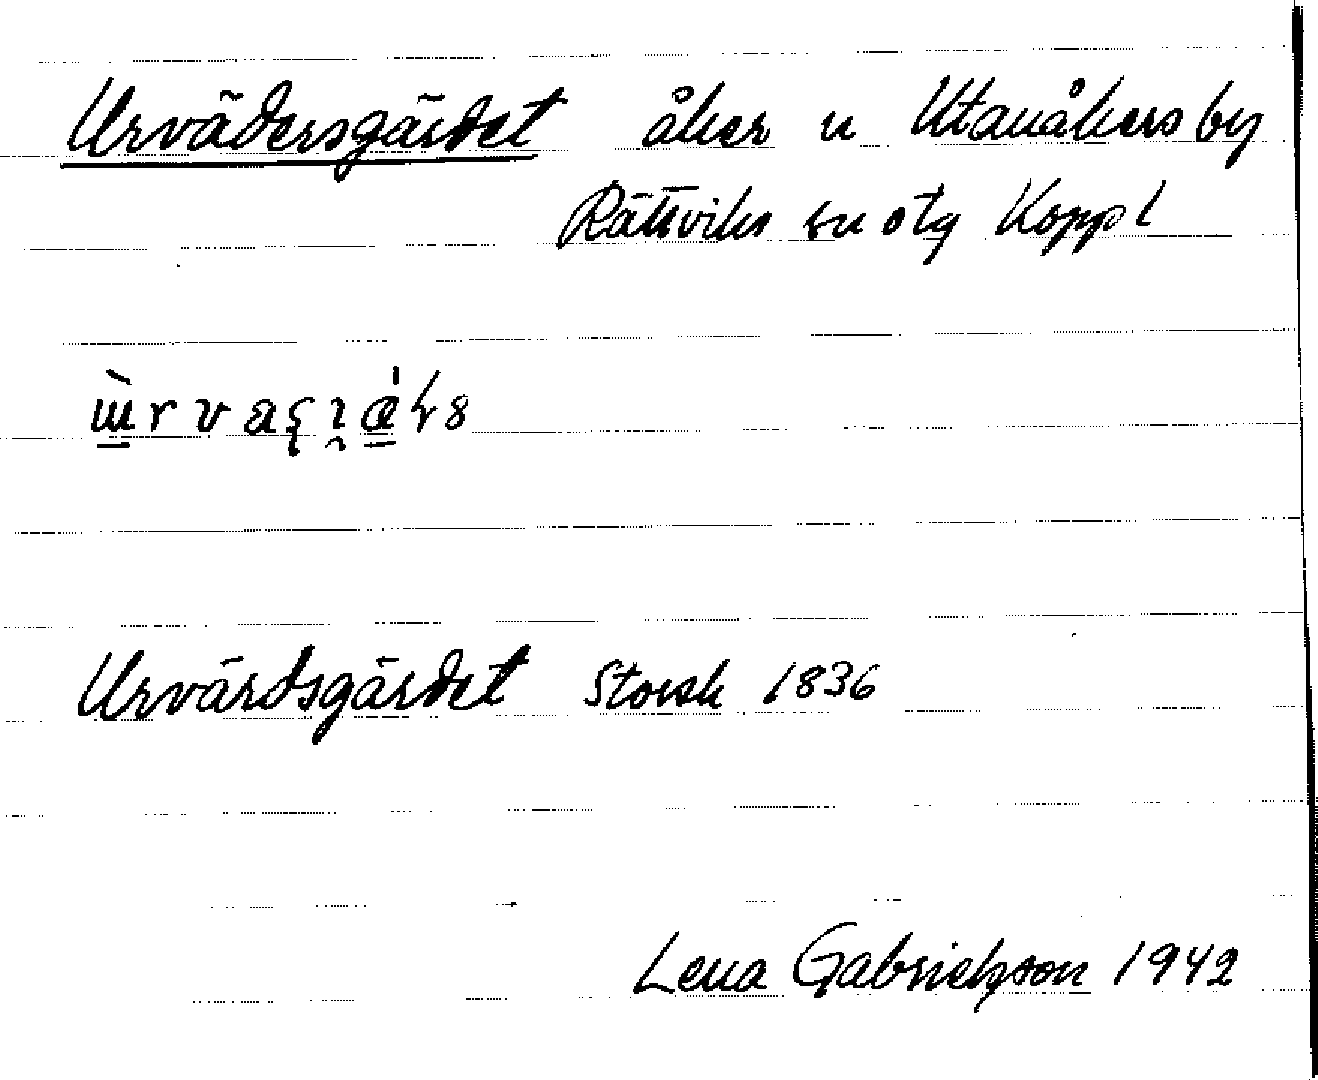 Urvädersgärdet åker n Utanåkers by
Rättviks sn otg Koppl
Urvärdsgärdet Storsk 1836
Lena Gabrielsson 1942